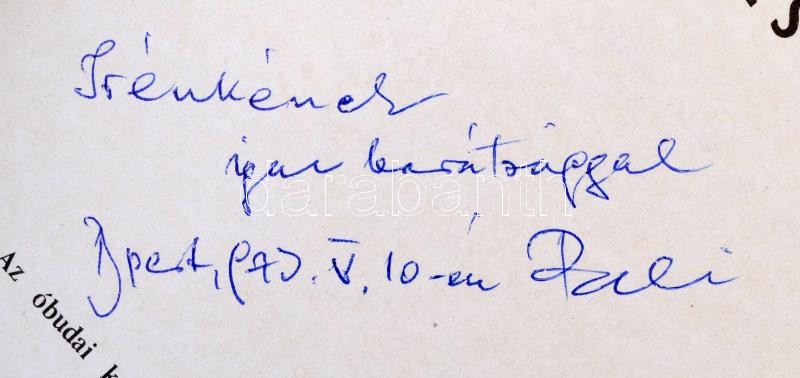 Irénkének
igaz barátsággal
Bpest, 973. V. 10-én Pali
Az óbudai k
darabanth